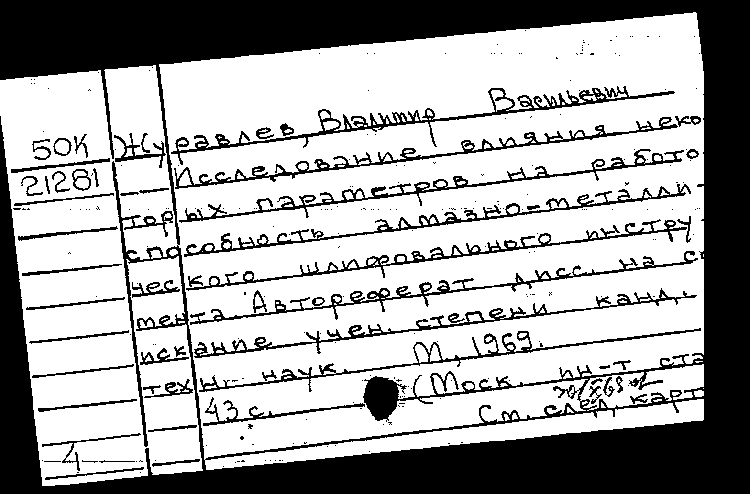 Журавлев, Владимир Васильевич
50К
21281
Исследование влияния неко-
торых параметров на работо-
способность алмазно-металли-
ческого шлифовального инстру-
мента. Автореферат дисс. на со
искание учен. степени канд.
техн. наук. М., 1969.
43 с. (Моск. ин-т ста
См. след. карт
4